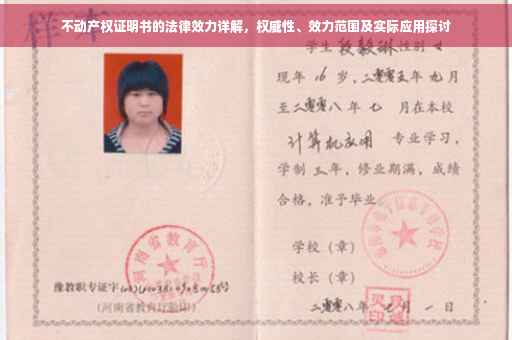 不动产权证明书的法律效力详解，权威性、效力范围及实际应用探讨
样本
学生段毅琳性别女
现年16岁，二零零五年九月
至二零零八年七月在本校
计算机应用 专业学习，
学制三年，修业期满，成绩
合格，准予毕业。
学校（章）
校长（章）
二零零八年七月一日
河南省教育厅
豫教职专证字
（河南省教育厅验印）